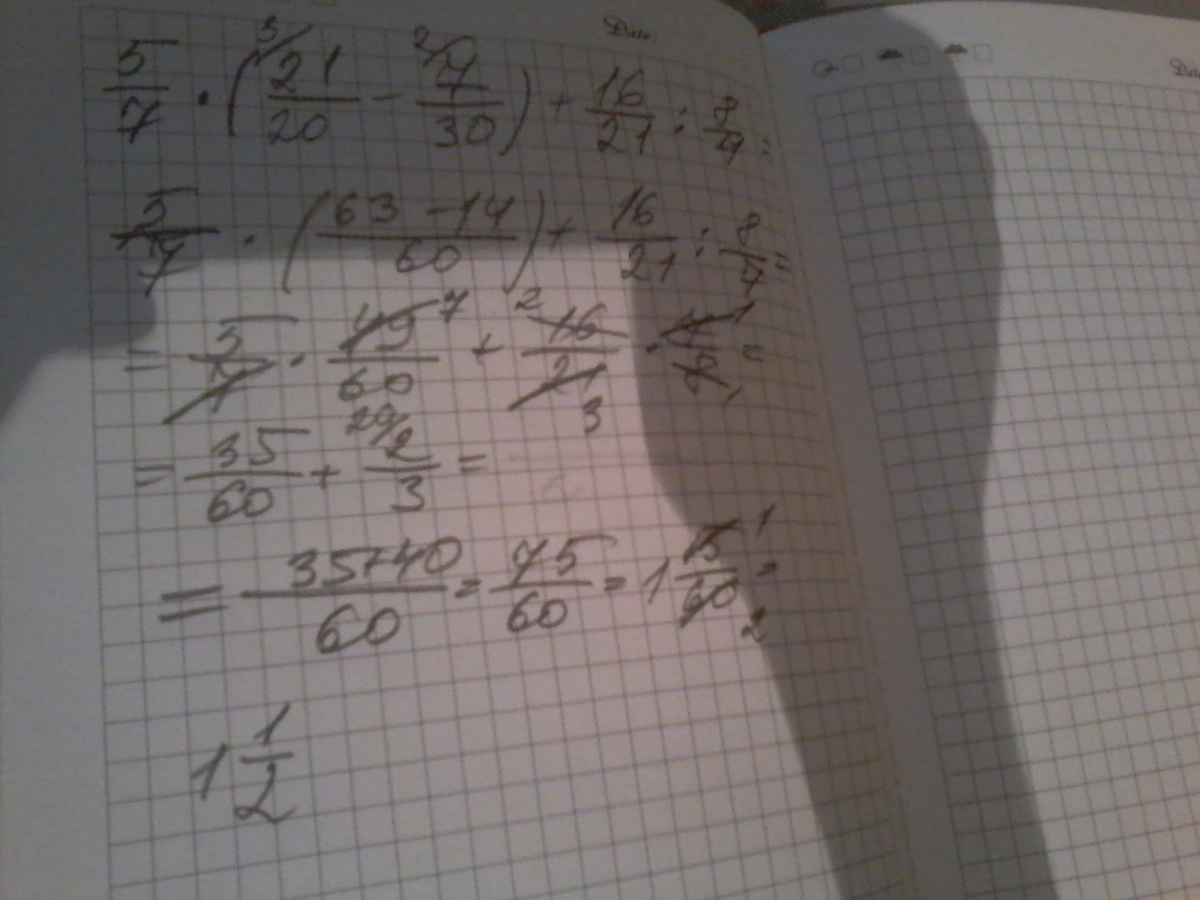 Date
5/7 · (³/21/20 - ²/7/30) + 16/21 : 8/7 =
5/7 · (63 - 14/60) + 16/21 : 8/7 =
= 5/7 · 49 7/60 + 2 16/21 3 · 7 1/8 1 =
= 35/60 + 20/2/3 =
= 35+40/60 = 75/60 = 1 15 1/60 2 =
1 1/2